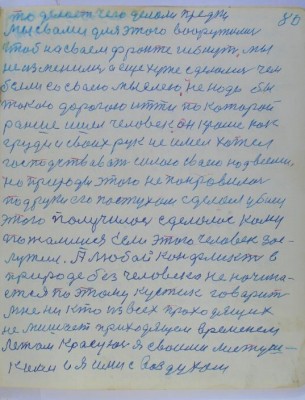 то делает чего делали предки 80
мы с вами для этого вооружили
чтоб на своем фронте гибнут, мы
не изменили, а еще хуже сделали чем
если со своею мыслею, не надо бы
такою дорогою итти по которой
раньше шел человек, он кроме как
груди и своих рук не имел хотел
господствовать силою своею над всеми.
Но природе этого не понравилос
подруги его поступком сделал убии
этого получилос сделалос кому
пожалился Если этого человек зас-
лужил. А любой конфликт в
природе без человека не начина-
ется поэтому кустик говарит
мне ни кто из всех проходящих
не мешает приходящим временем
Летом Красуюс я своими листуш-
ками и я ими с воздухом